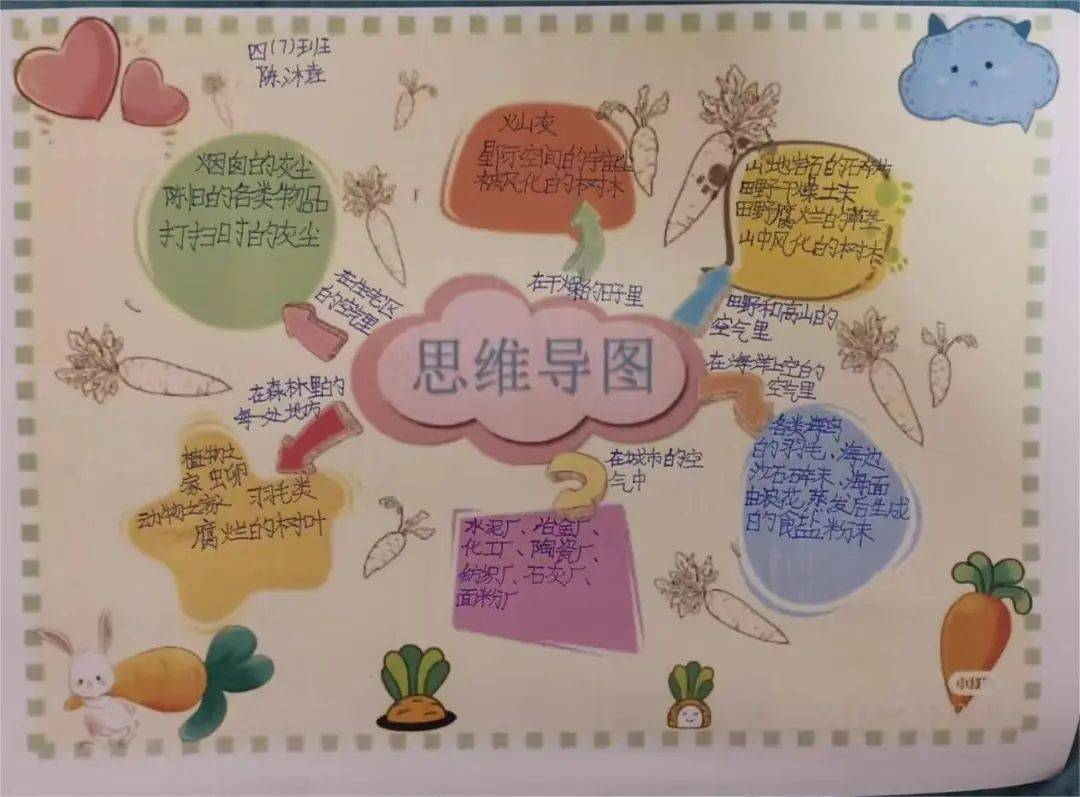 四(7)班
陈沐垚
烟囱的灰尘
陈旧的各类物品
打扫时的灰尘
火山灰
星际空间的宇宙尘
被风化的树木
山地岩石的碎
田野干燥土末
田野腐烂的草茎
山中风化的树木
在住宅区
的空气里
在干燥的日子里
田野和高山的
空气里
思维导图
在海洋上空的
空气里
在森林里的
每一处地方
植物之
家 虫卵
动物之家 羽毛类
腐烂的树叶
在城市的空
气中
水泥厂、冶金厂、
化工厂、陶瓷厂、
纺织厂、石灰厂、
面粉厂
各类海鸟
的羽毛、海边
沙石碎末、海面
由浪花蒸发后生成
的食盐粉末